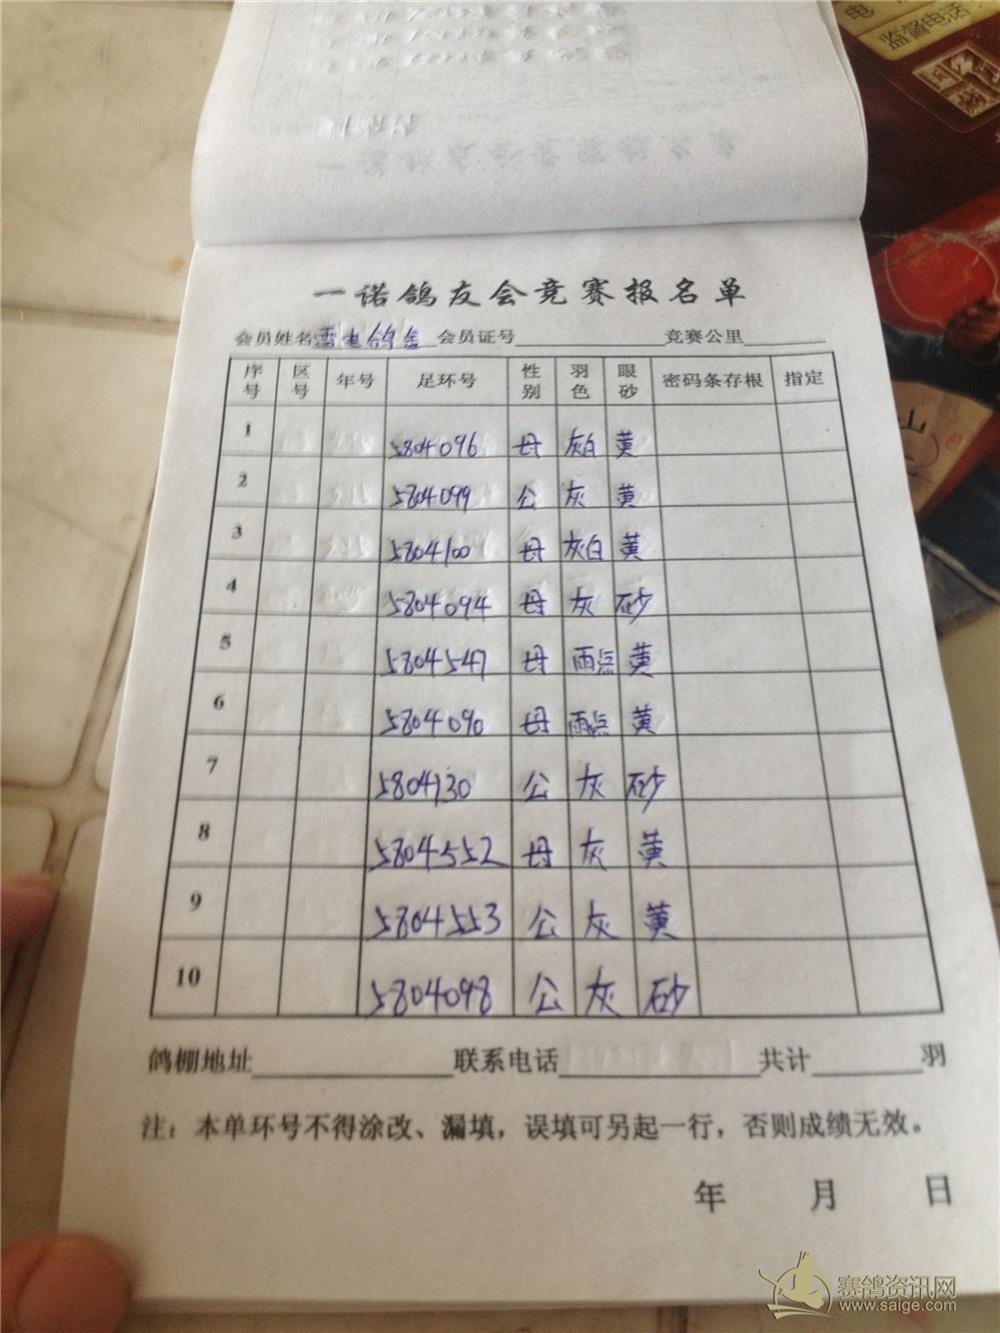 电
监督电话:
一诺鸽友会竞赛报名单
会员姓名 雷电鸽舍 会员证号 竞赛公里
序号 区号 年号 足环号 性别 羽色 眼砂 密码条存根 指定
1 5804096 母 灰白 黄
2 5804099 公 灰 黄
3 5804100 母 灰白 黄
4 5804094 母 灰 砂
5 5804547 母 雨点 黄
6 5804090 母 雨点 黄
7 5804130 公 灰 砂
8 5804552 母 灰 黄
9 5804553 公 灰 黄
10 5804098 公 灰 砂
鸽棚地址 联系电话 共计 羽
注：本单环号不得涂改、漏填，误填可另起一行，否则成绩无效。
年 月 日
赛鸽资讯网
www.saige.com